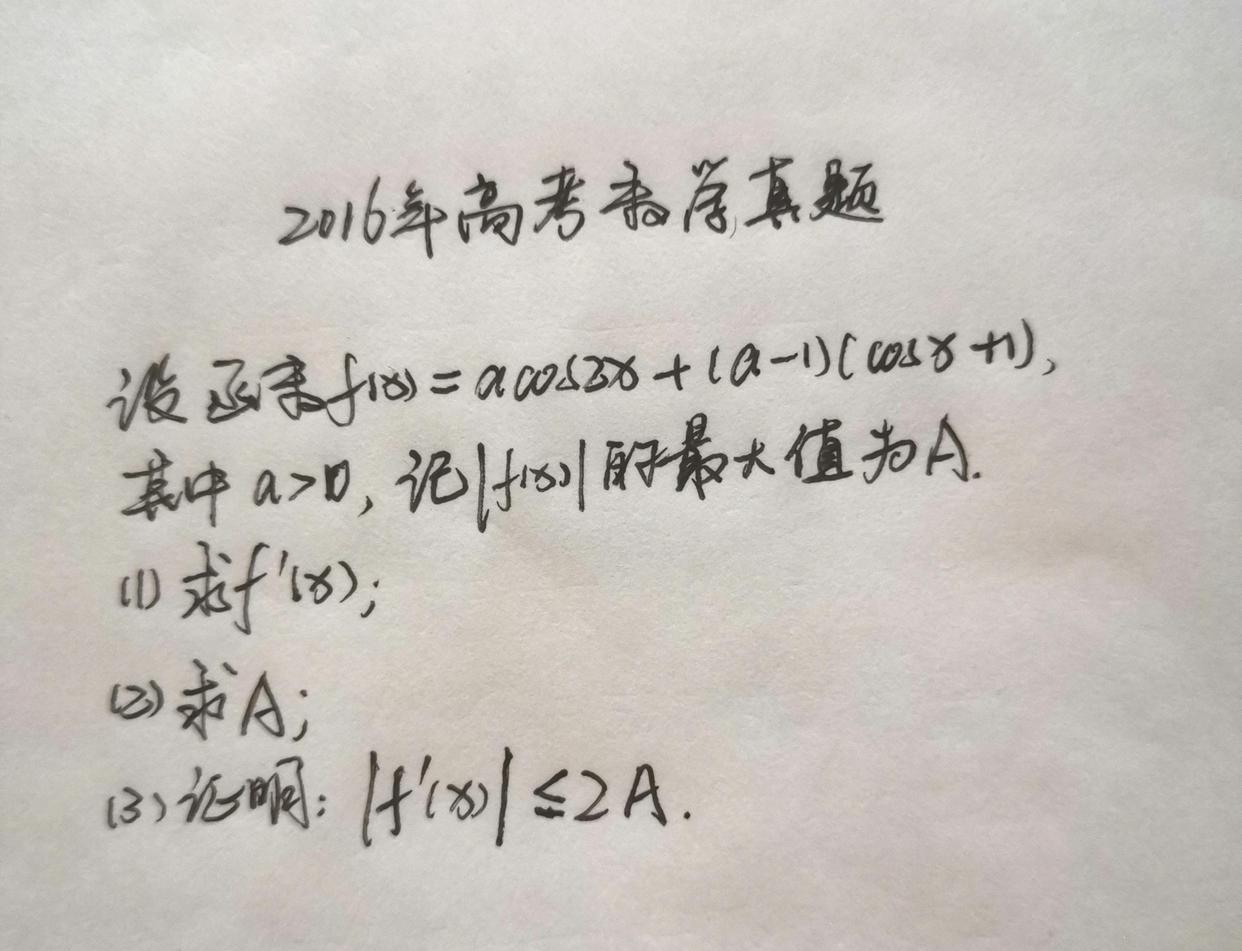 2016年高考数学真题
设函数f(x)=acos2x+(a-1)(cosx+1),
其中a>0,记|f(x)|的最大值为A.
(1)求f'(x);
(2)求A;
(3)证明:|f'(x)|≤2A.